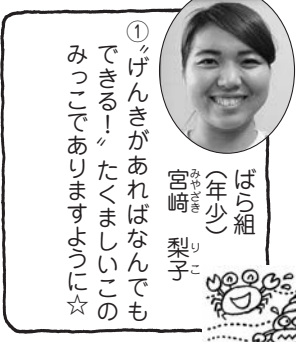 ばら組
(年少)
宮﨑 梨子
みやざき りこ
①〝げんきがあればなんでも
できる!〟たくましいこの
みっこでありますように☆